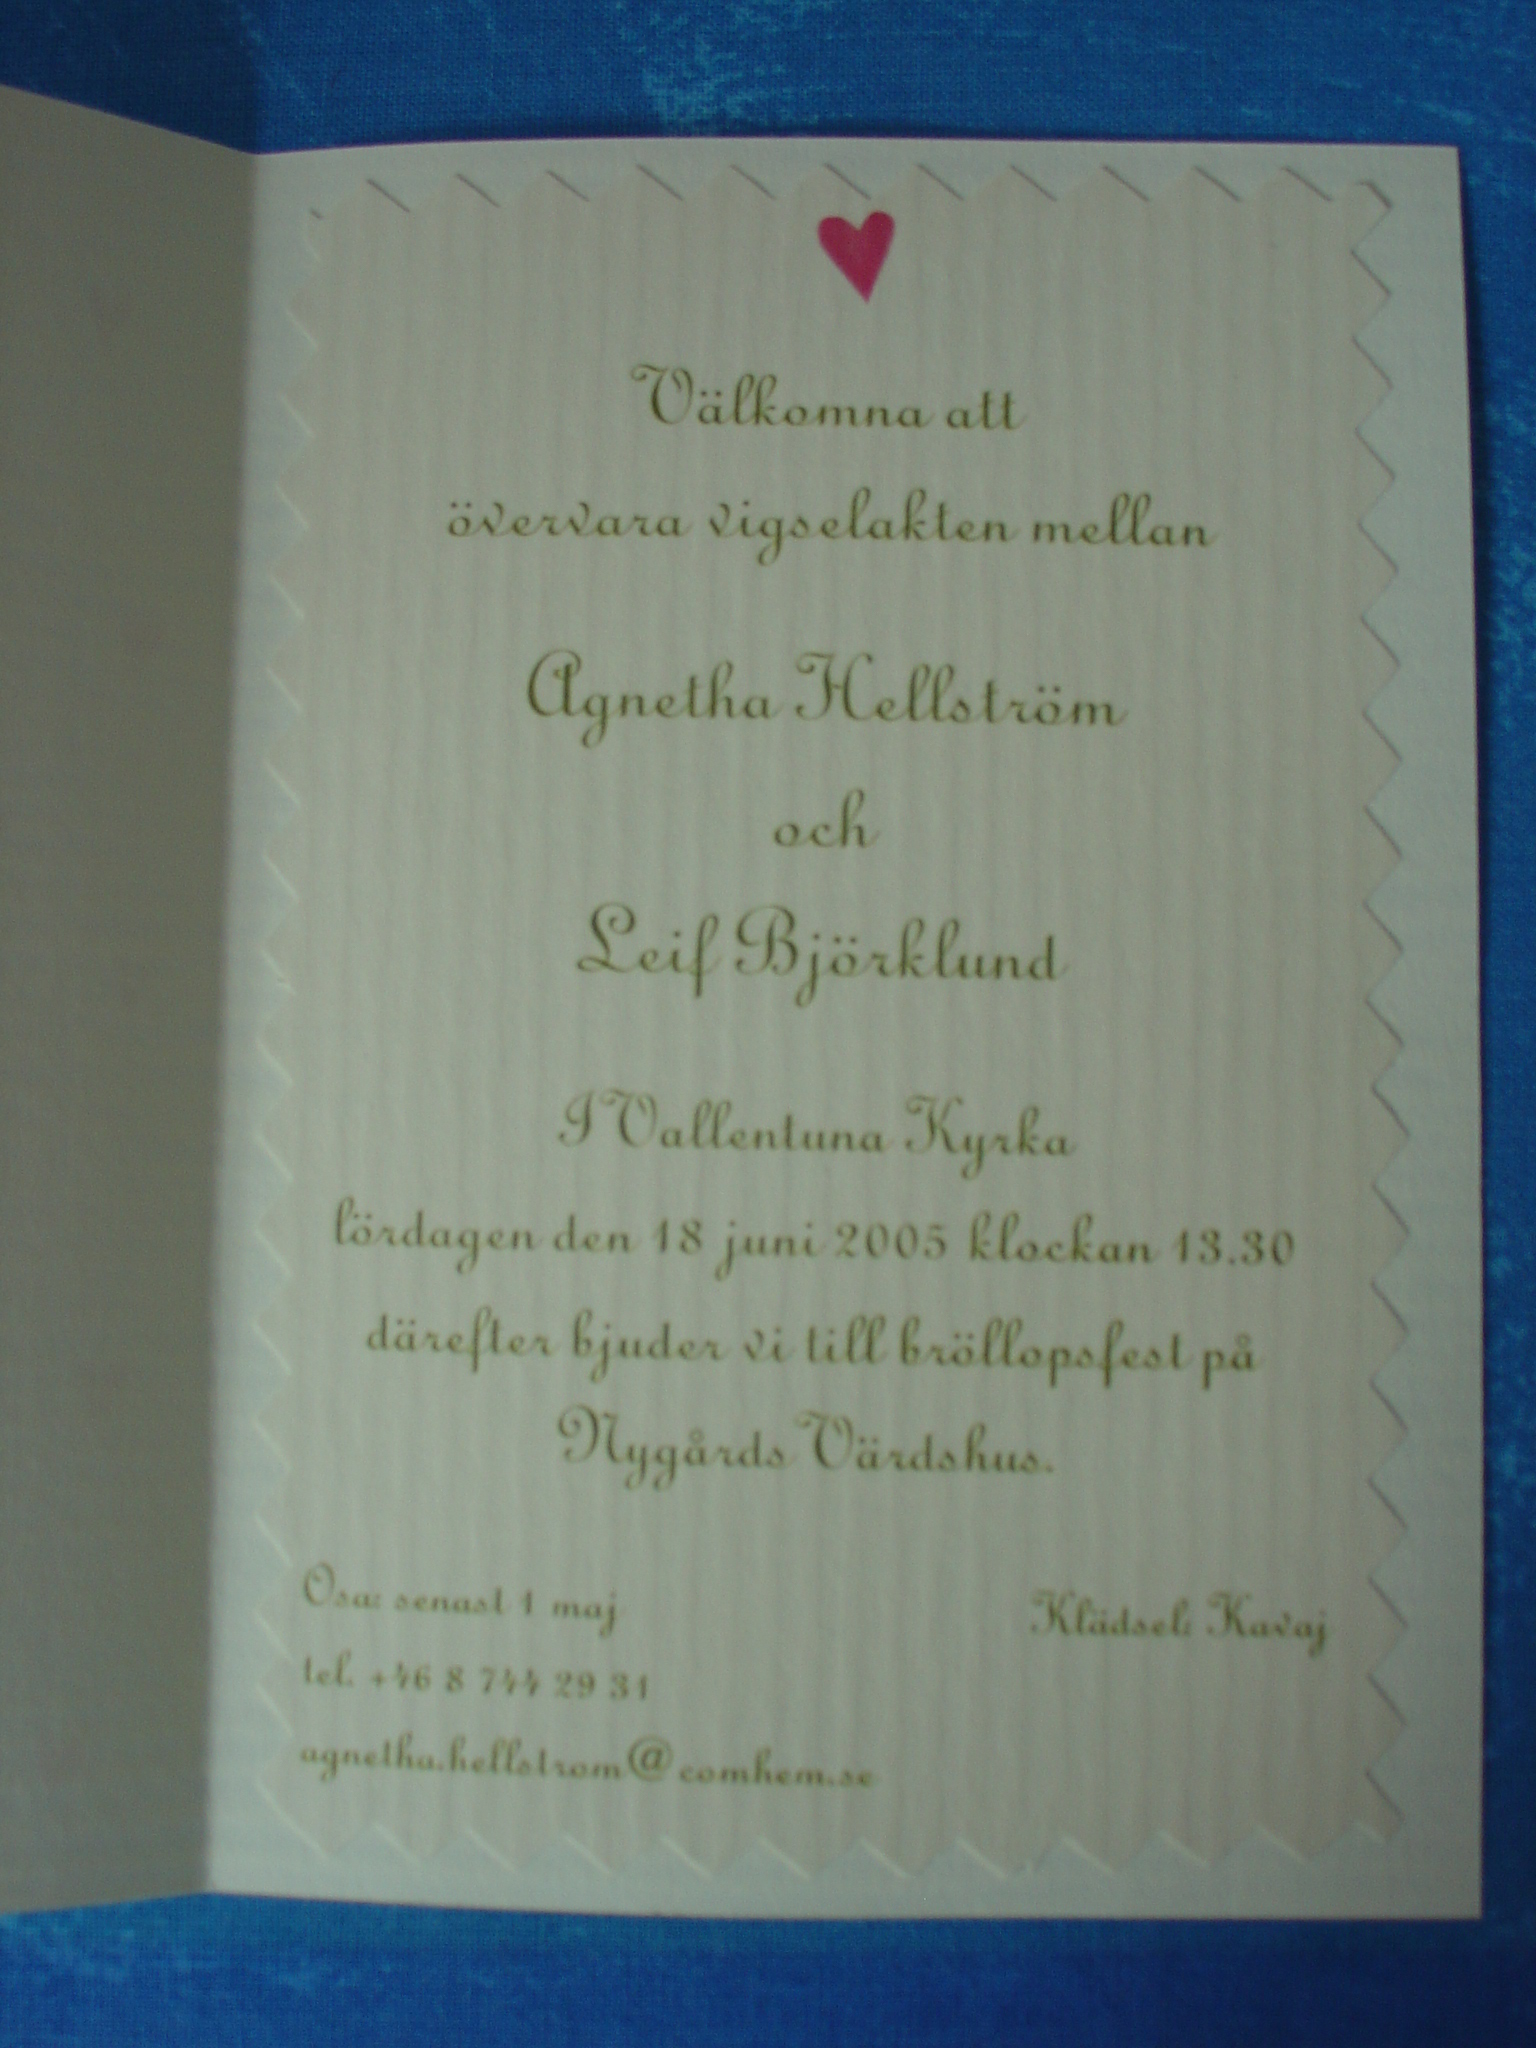 Välkomna att
övervara vigselakten mellan
Agnetha Hellström
och
Leif Björklund
I Vallentuna Kyrka
lördagen den 18 juni 2005 klockan 13.30
därefter bjuder vi till bröllopsfest på
Nygårds Värdshus.
Osa: senast 1 maj
Klädsel: Kavaj
tel. +46 8 744 29 31
agnetha.hellstrom@comhem.se